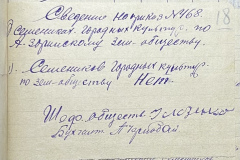 18
Сведение на приказ №468.
семенниках городных культур. по
А-Зоринскому зем-обществу.
1) Семенников городных культур
по зем-обществу Нет
Пред. обществ
Бухгалт